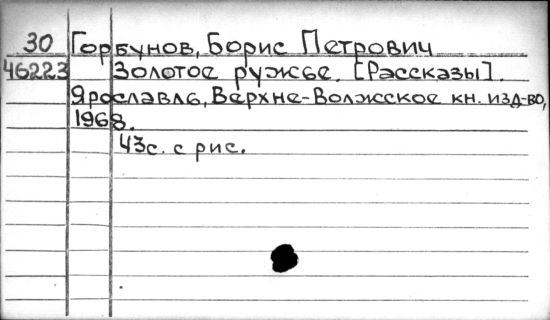 30 Горбунов, Борис Петрович
46223 Золотое ружье. [Рассказы].
Ярославль, Верхне-Волжское кн. изд-во,
1968.
43с. с рис.